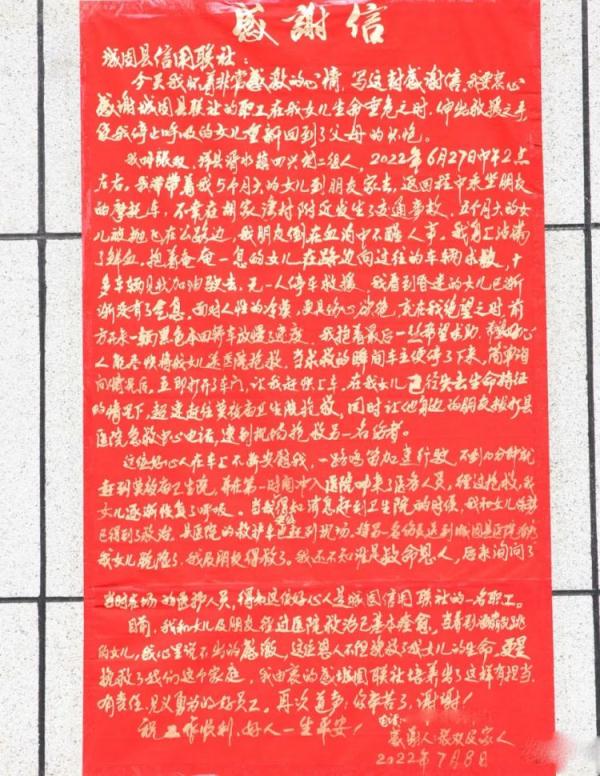 感謝信
城固县信用联社：
今天我怀着非常感激的心情，写这封感谢信，我要衷心
感谢城固县联社的职工在我女儿生命垂危之时，伸出救援之手
使我停止呼吸的女儿重新回到了父母的怀抱。
我叫张双，洋县 四兴村二组人，2022年6月27日中午2点
左右，我带带着我5个月大的女儿到朋友家去，返回程中乘坐朋友
的摩托车，不幸在胡家湾村附近发生了交通事故，五个月大的女
儿被抛飞在公路边，我朋友倒在血泊中不醒人事，我身上沾满
了鲜血，抱着奄奄一息的女儿在路边向过往的车辆求救，十
多车辆见状加油驶去，无一人停车救援，我看到昏迷的女儿已渐
渐没有了气息，面对人性的冷漠，更是伤心绝，就在我绝望之时，前
方又来一辆黑色本田轿车放慢了速度，我抱着最后一丝希望求助，心
人能尽快将我女儿送医院抢救，当求救的瞬间车主便停了下来，简单询
问情况后，立即打开了车门，让我赶快上车，在我女儿已经失去生命特征
的情况下，超速赶往卫生院抢救，同时让他的朋友拨打县
医院急救中心电话，速到现场抢救另一名伤者。
这位好心人在车上不断安慰我，一路鸣笛加速行驶，不到十分钟就
赶到卫生院，并在第一时间冲入医院叫来了医疗人员，经过抢救，我
女儿逐渐恢复了呼吸。当我得知消息赶到卫生院的时候，我和女儿
已得到了救治，县医院的救护车也赶到现场，将另一名伤员送到城固县医院救治
我女儿脱险了，我及朋友得救了。我还不知谁是救命恩人，后来询问了
当时在场的医护人员，得知这位好心人是城固信用联社的一名职工。
目前，我和女儿及朋友经过医院救治已基本痊愈，看着活蹦乱跳
的女儿，我心里说不出的感激，这位恩人不但挽救了我女儿的生命，更是
挽救了我们这个家庭，我由衷的感城固联社培养出了这样有担当
有责任，见义勇为的好员工。再次道声：你辛苦了，谢谢！
祝工作顺利，好人一生平安！
电话：
感谢人：张双及家人
2022年7月8日